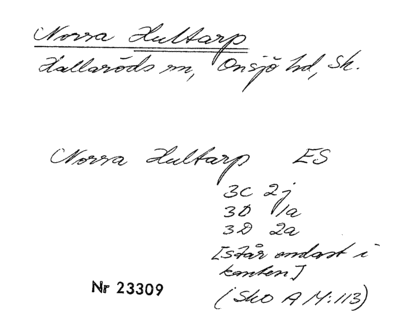 Norra Hultarp
Hallaröds sn, Onsjö hd, Sk.
Norra Hultarp ES
3C 2j
3D 1a
3D 2a
[står endast i
kanten]
Nr 23309
(Sko A M:113)